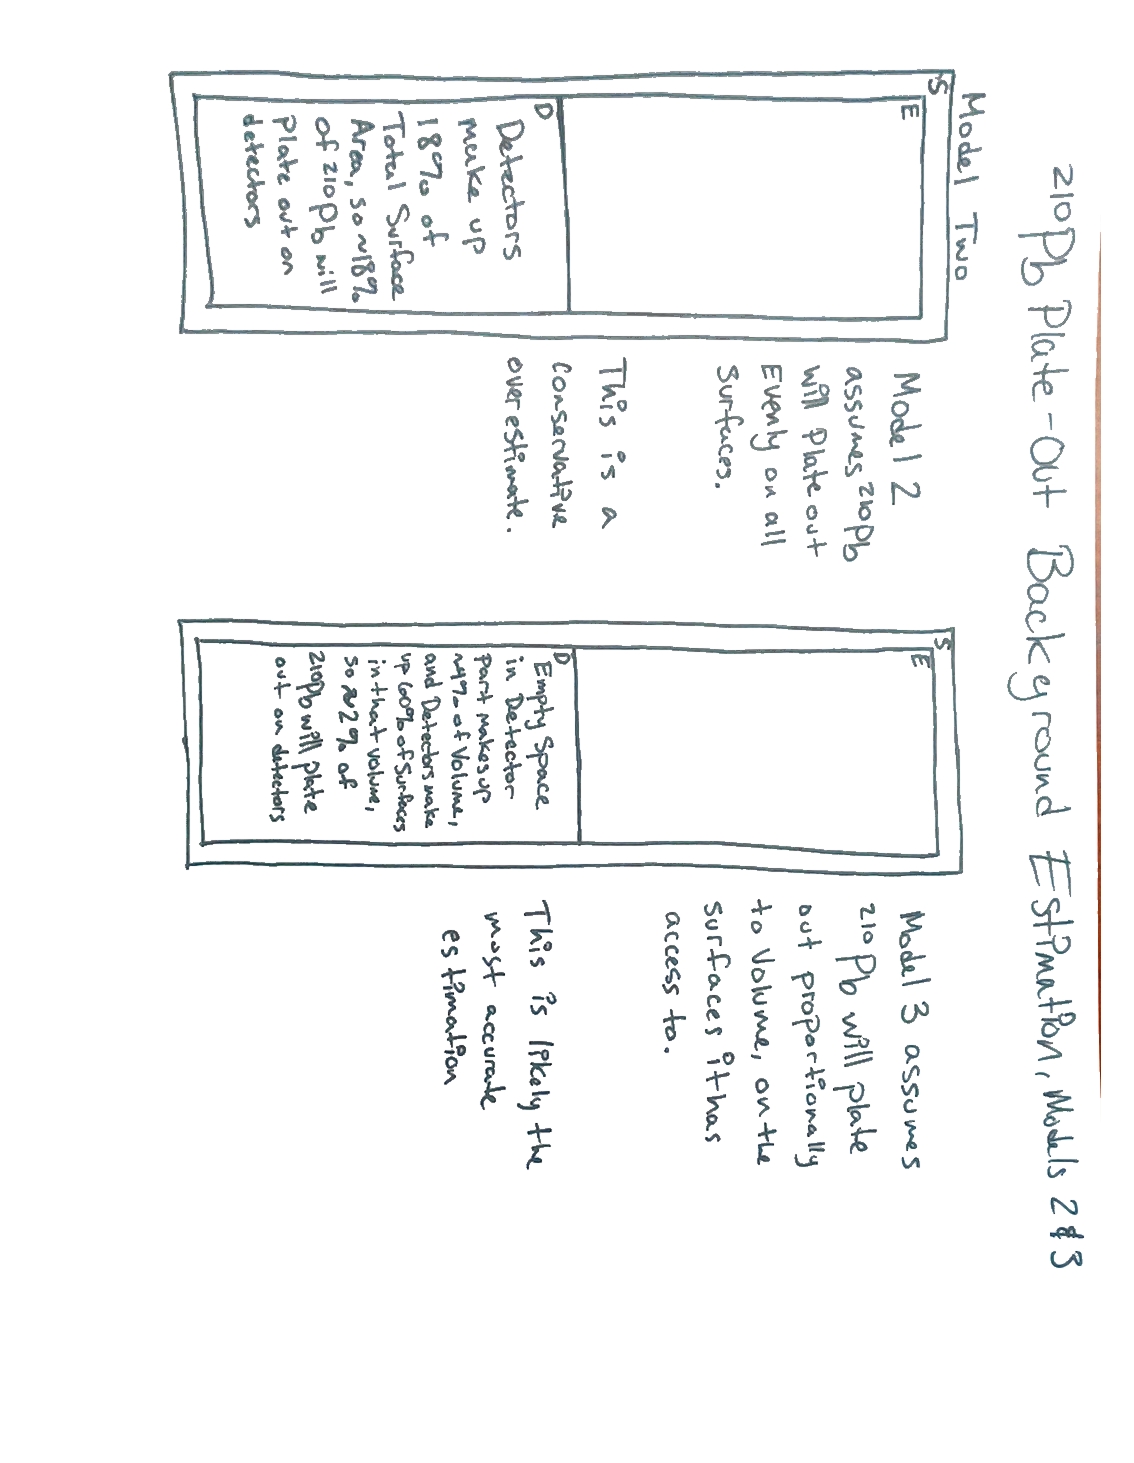 210Pb Plate-Out Background Estimation, Models 2 & 3
Model Two
S
E
D
Detectors
make up
18% of
Total Surface
Area, so ~18%
of 210Pb will
plate out on
detectors
Model 2
assumes 210Pb
will Plate out
Evenly on all
Surfaces.
This is a
Conservative
overestimate.
S
E
D
Empty Space
in Detector
part makes up
~4% of Volume,
and Detectors make
up 60% of Surfaces
in that volume,
so ~2% of
210Pb will plate
out on detectors
Model 3 assumes
210Pb will plate
out proportionally
to Volume, on the
surfaces it has
access to.
This is likely the
most accurate
estimation